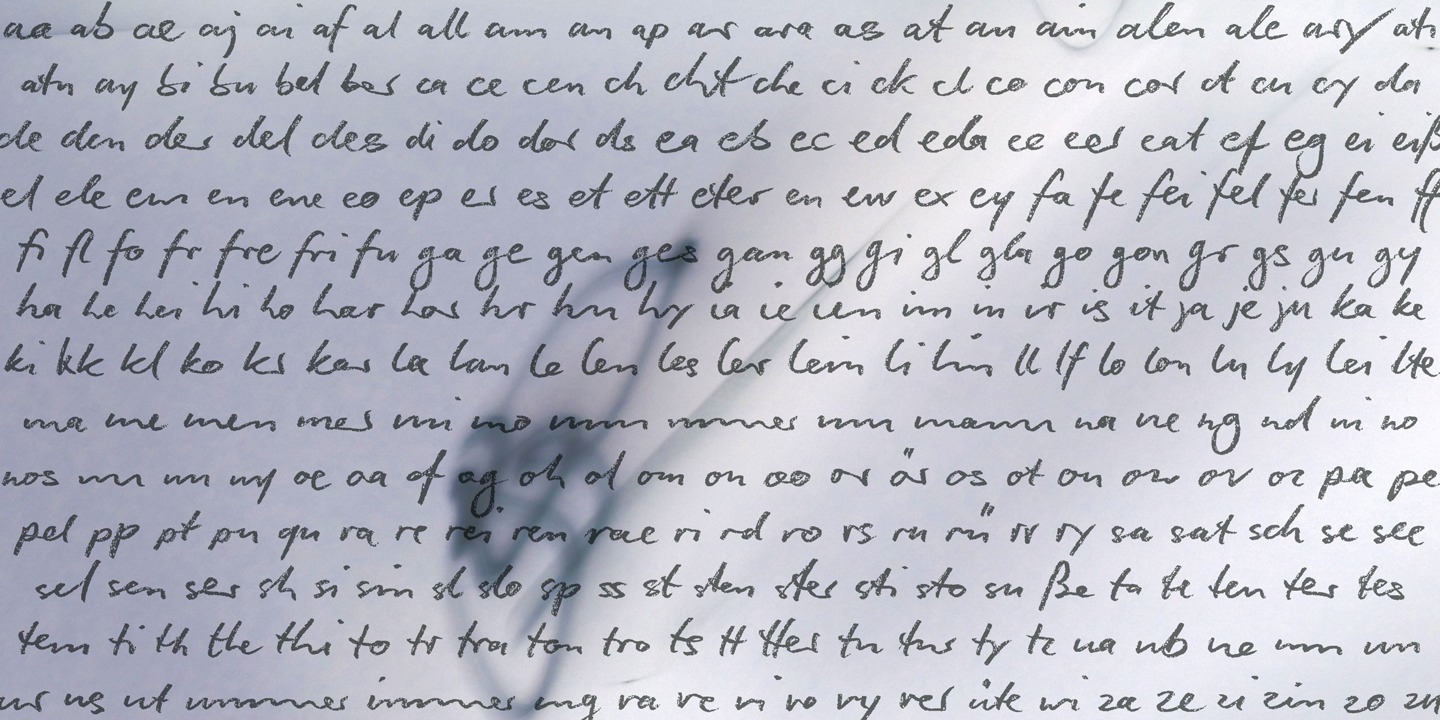 aa ab ae aj ai af al all am an ap ar ara as at au ain alen ale ary ath
atn ay bi bu bel ber ca ce cen ch cht che ci ck cl co con cor ct cu cy da
de den der del des di do dor ds ea eb ec ed eda ee eer eat ef eg ei eiß
el ele em en ene eo ep er es et ett eter eu ew ex ey fa fe fei fel fer fen ff
fi fl fo fr fre fri fu ga ge gen ges gan gg gi gl gla go gon gr gs gu gy
ha he hei hi ho har hr hn hy ia ie ien im in ir is it ja je ju ka ke
ki kk kl ko ks kar la lan le len les ler lein li lin ll lf lo lon lu ly lei lte
ma me men mer mi mo mm mmer mann na ne ng nd ni no
nos nn nu ny oe oa of og oh ol om on oo or är os ot ou ow ov oz pa pe
pel pp pt pu qu ra re rei ren rae ri rd ro rs ru rü rv ry sa sat sch se see
sel sen ser sh si sin sl slo sp ss st sten ster sti sto su ße ta te ten ter tes
tem ti th the thi to tr tra ton tro ts tt tter tu tus ty tz ua ub ue um un
ur us ut ummer immer ung va ve vi vo vy ver üte wi za ze zi zin zo zu